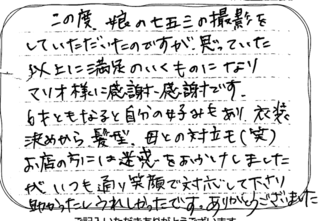 この度、娘の七五三の撮影を
していただいたのですが、思っていた
以上に満足のいくものになり
マリオ様に感謝、感謝です。
6才ともなると自分の好みもあり、衣装
決めから髪型、母との対立も(笑)
お店の方には迷惑をおかけしました
が、いつも通り笑顔で対応して下さり
助かったしうれしかったです。ありがとうございました
ご記入いただきありがとうございます